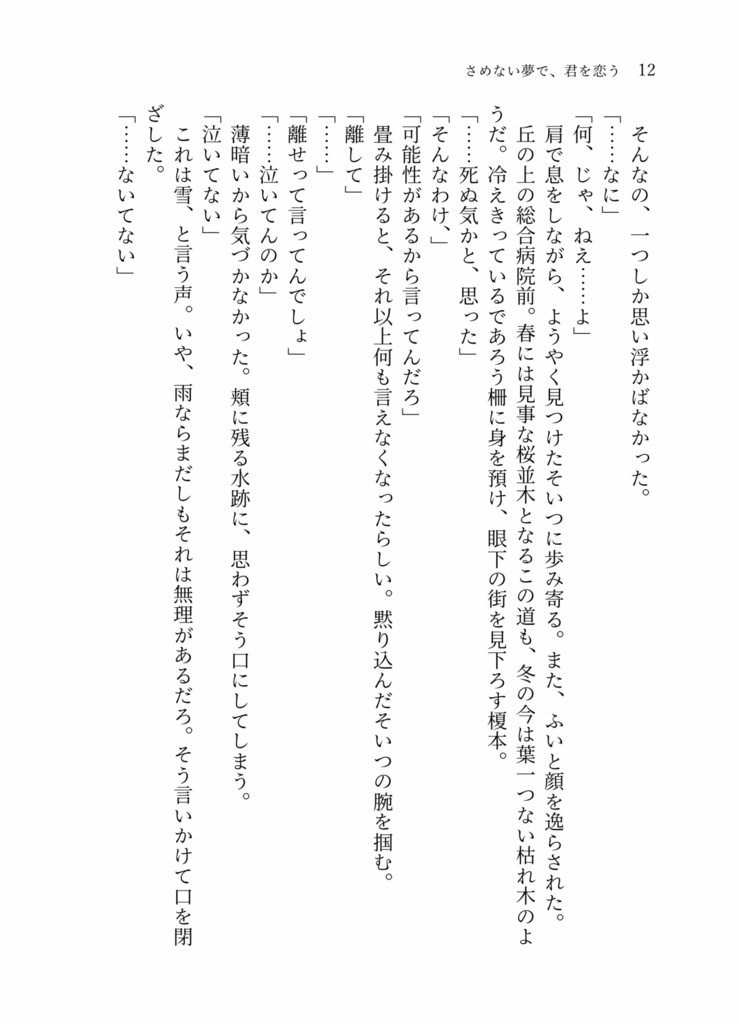 さめない夢で、君を恋う 12
そんなの、一つしか思い浮かばなかった。
「……なに」
「何、じゃ、ねえ……よ」
肩で息をしながら、ようやく見つけたそいつに歩み寄る。また、ふいと顔を逸らされた。
丘の上の総合病院前。春には見事な桜並木となるこの道も、冬の今は葉一つない枯れ木のよ
うだ。冷えきっているであろう柵に身を預け、眼下の街を見下ろす榎本。
「……死ぬ気かと、思った」
「そんなわけ、」
「可能性があるから言ってんだろ」
畳み掛けると、それ以上何も言えなくなったらしい。黙り込んだそいつの腕を掴む。
「離して」
「……」
「離せって言ってんでしょ」
「……泣いてんのか」
薄暗いから気づかなかった。頬に残る水跡に、思わずそう口にしてしまう。
「泣いてない」
これは雪、と言う声。いや、雨ならまだしもそれは無理があるだろ。そう言いかけて口を閉
ざした。
「……ないてない」